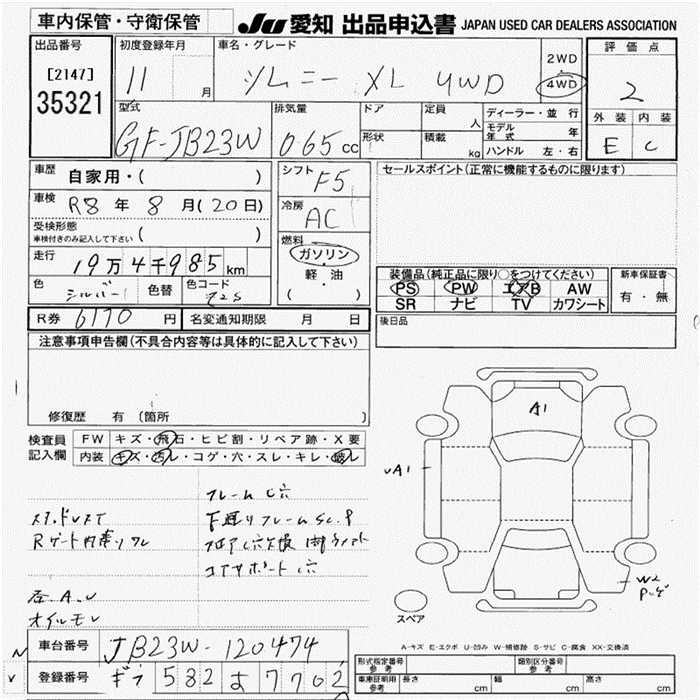 車内保管・守衛保管
JU 愛知 出品申込書 JAPAN USED CAR DEALERS ASSOCIATION
出品番号 初度登録年月 車名・グレード 評価点
[2147]
35321
11 月 ジムニー XL 4WD 2WD・4WD 2
型式 排気量 ドア 定員 人 ディーラー・並行 外装 内装
GF-JB23W 065 cc 形状 積載 kg モデル年式 年 E C
ハンドル 左・右
車歴 自家用・( ) シフト F5 セールスポイント(正常に機能するものに限ります)
車検 R8 年 8 月(20日) 冷房 AC
受検形態 ( )
車検付きのみ記入して下さい
燃料 ガソリン
走行 19万4千985km 軽・油
( )
装備品(純正品に限り○をつけてください) 新車保証書
色 シルバー 色替 色コード Z2S PS PW エアB AW 有・無
SR ナビ TV カワシート
R券 6170 円 名変通知期限 月 日 後日品
注意事項申告欄(不具合内容等は具体的に記入して下さい)
修復歴 有 (箇所 )
検査員 FW キズ・飛石・ヒビ割・リペア跡・X要
記入欄 内装 キズ・汚レ・コゲ・穴・スレ・キレ・破レ
A1
A1
フレーム C穴
下廻りフレームSC.P
コアサポートC穴
W2
P-ゲ
オイルモレ
スペア
A-キズ E-エクボ U-凹み W-補修跡 S-サビ C-腐食 XX-交換済
車台番号 JB23W-120474 形式指定番号 参考 類別区分番号 参考
登録番号 ギフ 582 よ 7702 車庫証明用 参考 長さ cm 幅 cm 高さ cm